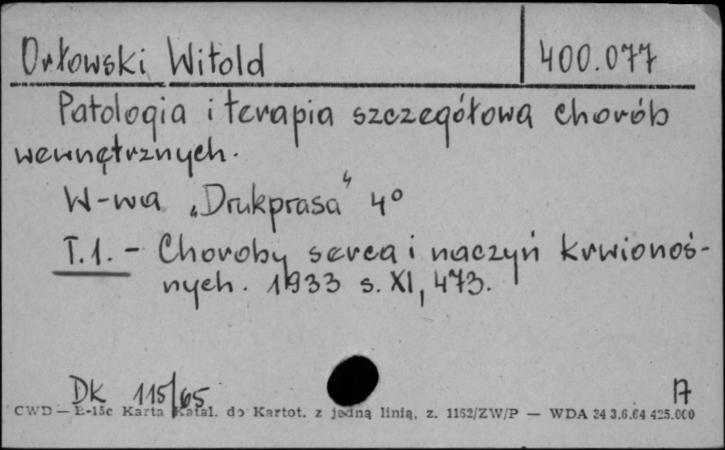 Orłowski Witold 400.077
Patologia i terapia szczegółowa chorób
wewnętrznych.
W-wa „Drukprasa" 4°
T.1. - Choroby serca i naczyń krwionoś-
nych. 1933 s. XI, 473.
DK 115/65 A
CWD — E-15c Karta Katal. do Kartot. z jedną linią, z. 1162/ZW/P — WDA 24 3.6.64 425.000